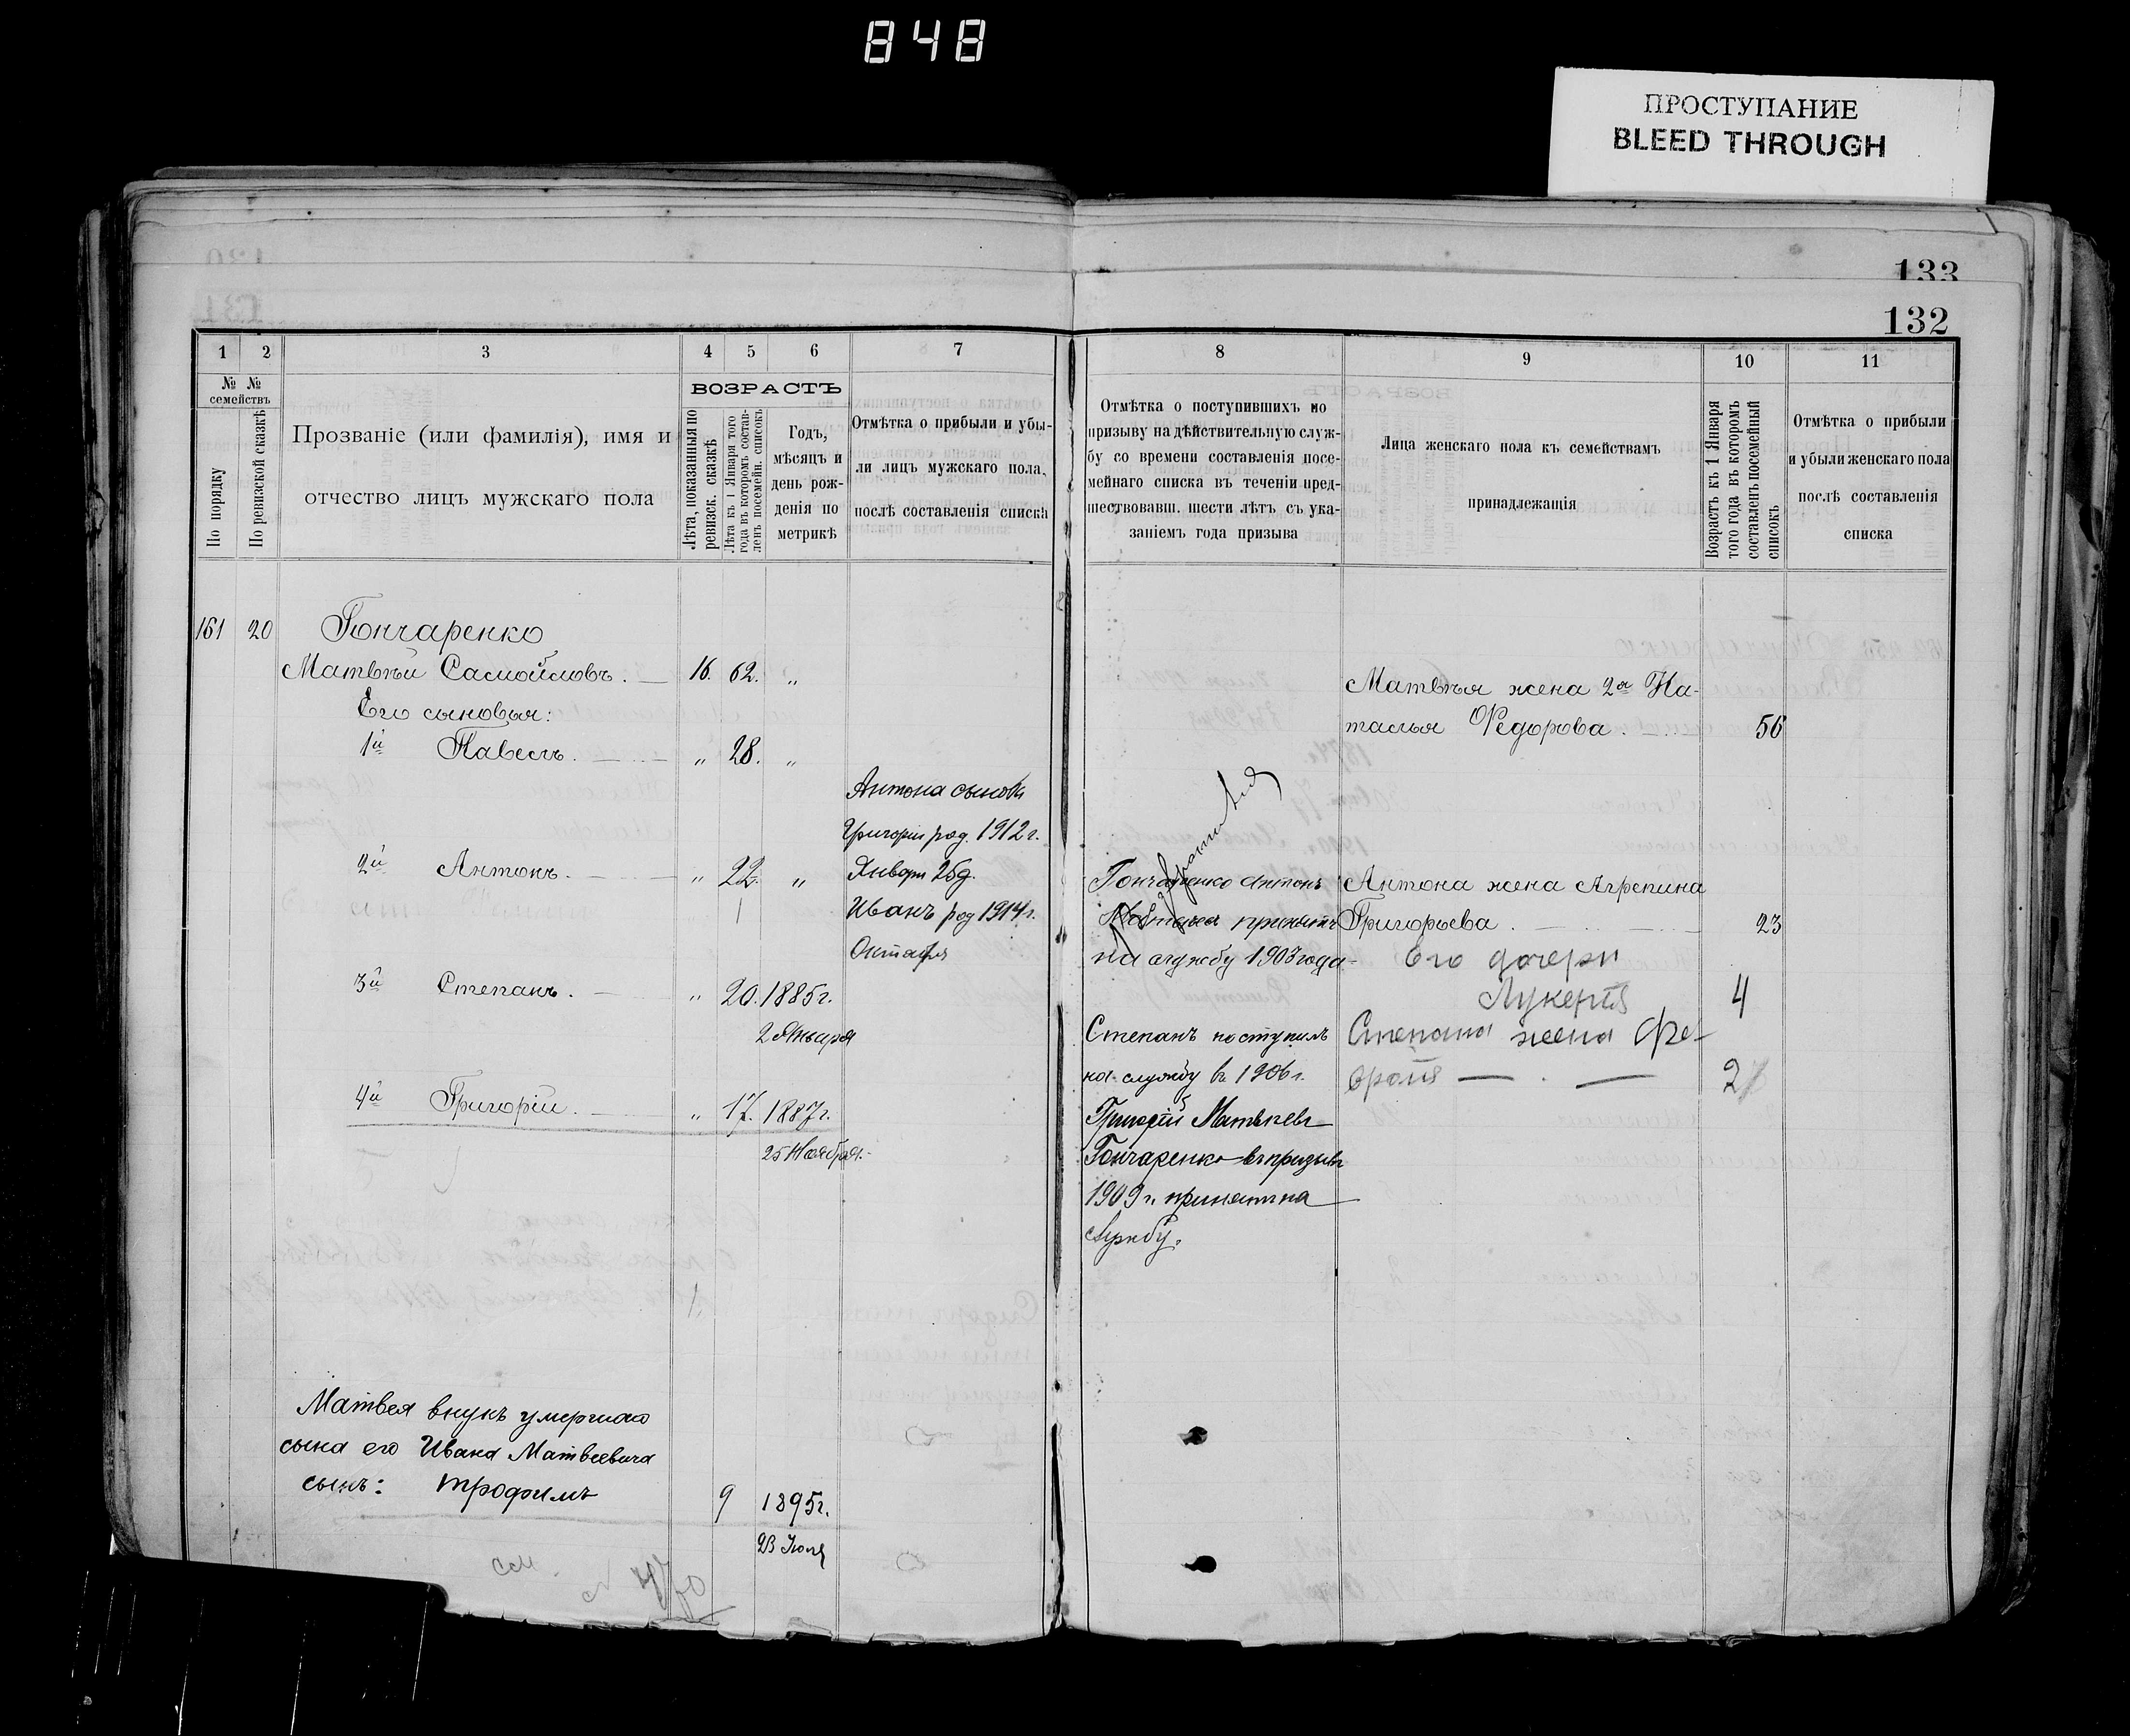 848
ПРОСТУПАНИЕ
BLEED THROUGH
133
132
1 2 3 4 5 6 7 8 9 10 11
№ №
семействъ
По порядку
По ревизской сказкѣ
Прозваніе (или фамилія), имя и
отчество лицъ мужскаго пола
ВОЗРАСТЪ
Лѣта, показанныя по
ревизск. сказкѣ
Лѣта къ 1 Января того
года въ которомъ состав-
ленъ посемейн. списокъ
Годъ,
мѣсяцъ и
день рож-
денія по
метрикѣ
Отмѣтка о прибыли и убы-
ли лицъ мужскаго пола,
послѣ составленія списка
Отмѣтка о поступившихъ по
призыву на дѣйствительную служ-
бу со времени составленія посе-
мейнаго списка въ теченіи пред-
шествовавш. шести лѣтъ съ ука-
заніемъ года призыва
Лица женскаго пола къ семействамъ
принадлежащія
Возрастъ къ 1 Января
того года въ которомъ
составленъ посемейный
списокъ
Отмѣтка о прибыли
и убыли женскаго пола
послѣ составленія
списка
161 20 Гончаренко
Матвѣй Самойловъ. 16. 62. "
Матвѣя жена 2я На-
Его сыновья:
талья Ѳедорова. 56
1й Павелъ. " 28. "
Антона сыновья
Григорій род. 1912 г.
2й Антонъ. " 22. " Января 25 д.
Гончаренко Антонъ Антона жена Агрепина
Иванъ род 1914 г.
принятъ Григорьева. 23
Октября
на службу 1903 года Его дочери
3й Степанъ. " 20. 1885 г.
Лукерія 4
2 Января
Степанъ поступилъ Степана жена Фев-
на службу въ 1906 г. ронія 2
4й Григорій. " 17. 1887 г.
Григорій Матвѣевъ
25 Ноября.
Гончаренко въ призывъ
1909 г. принятъ на
службу.
Матвея внукъ умершаго
сына его Ивана Матвеевича
сынъ: Трофимъ 9 1895 г.
23 Іюля
см.